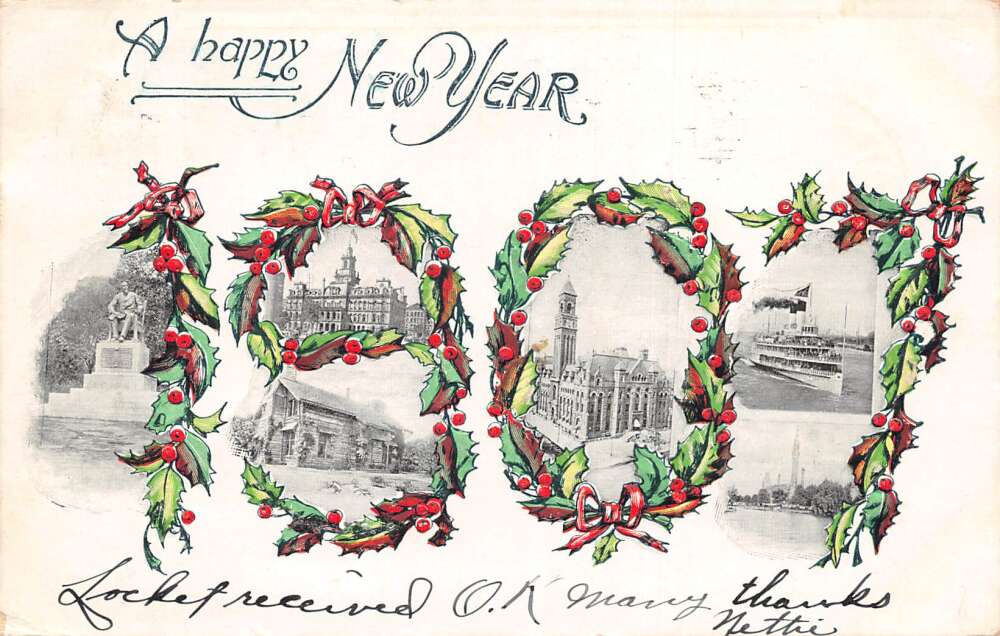 A happy New Year
1907
Locket received O.K many thanks
Nettie